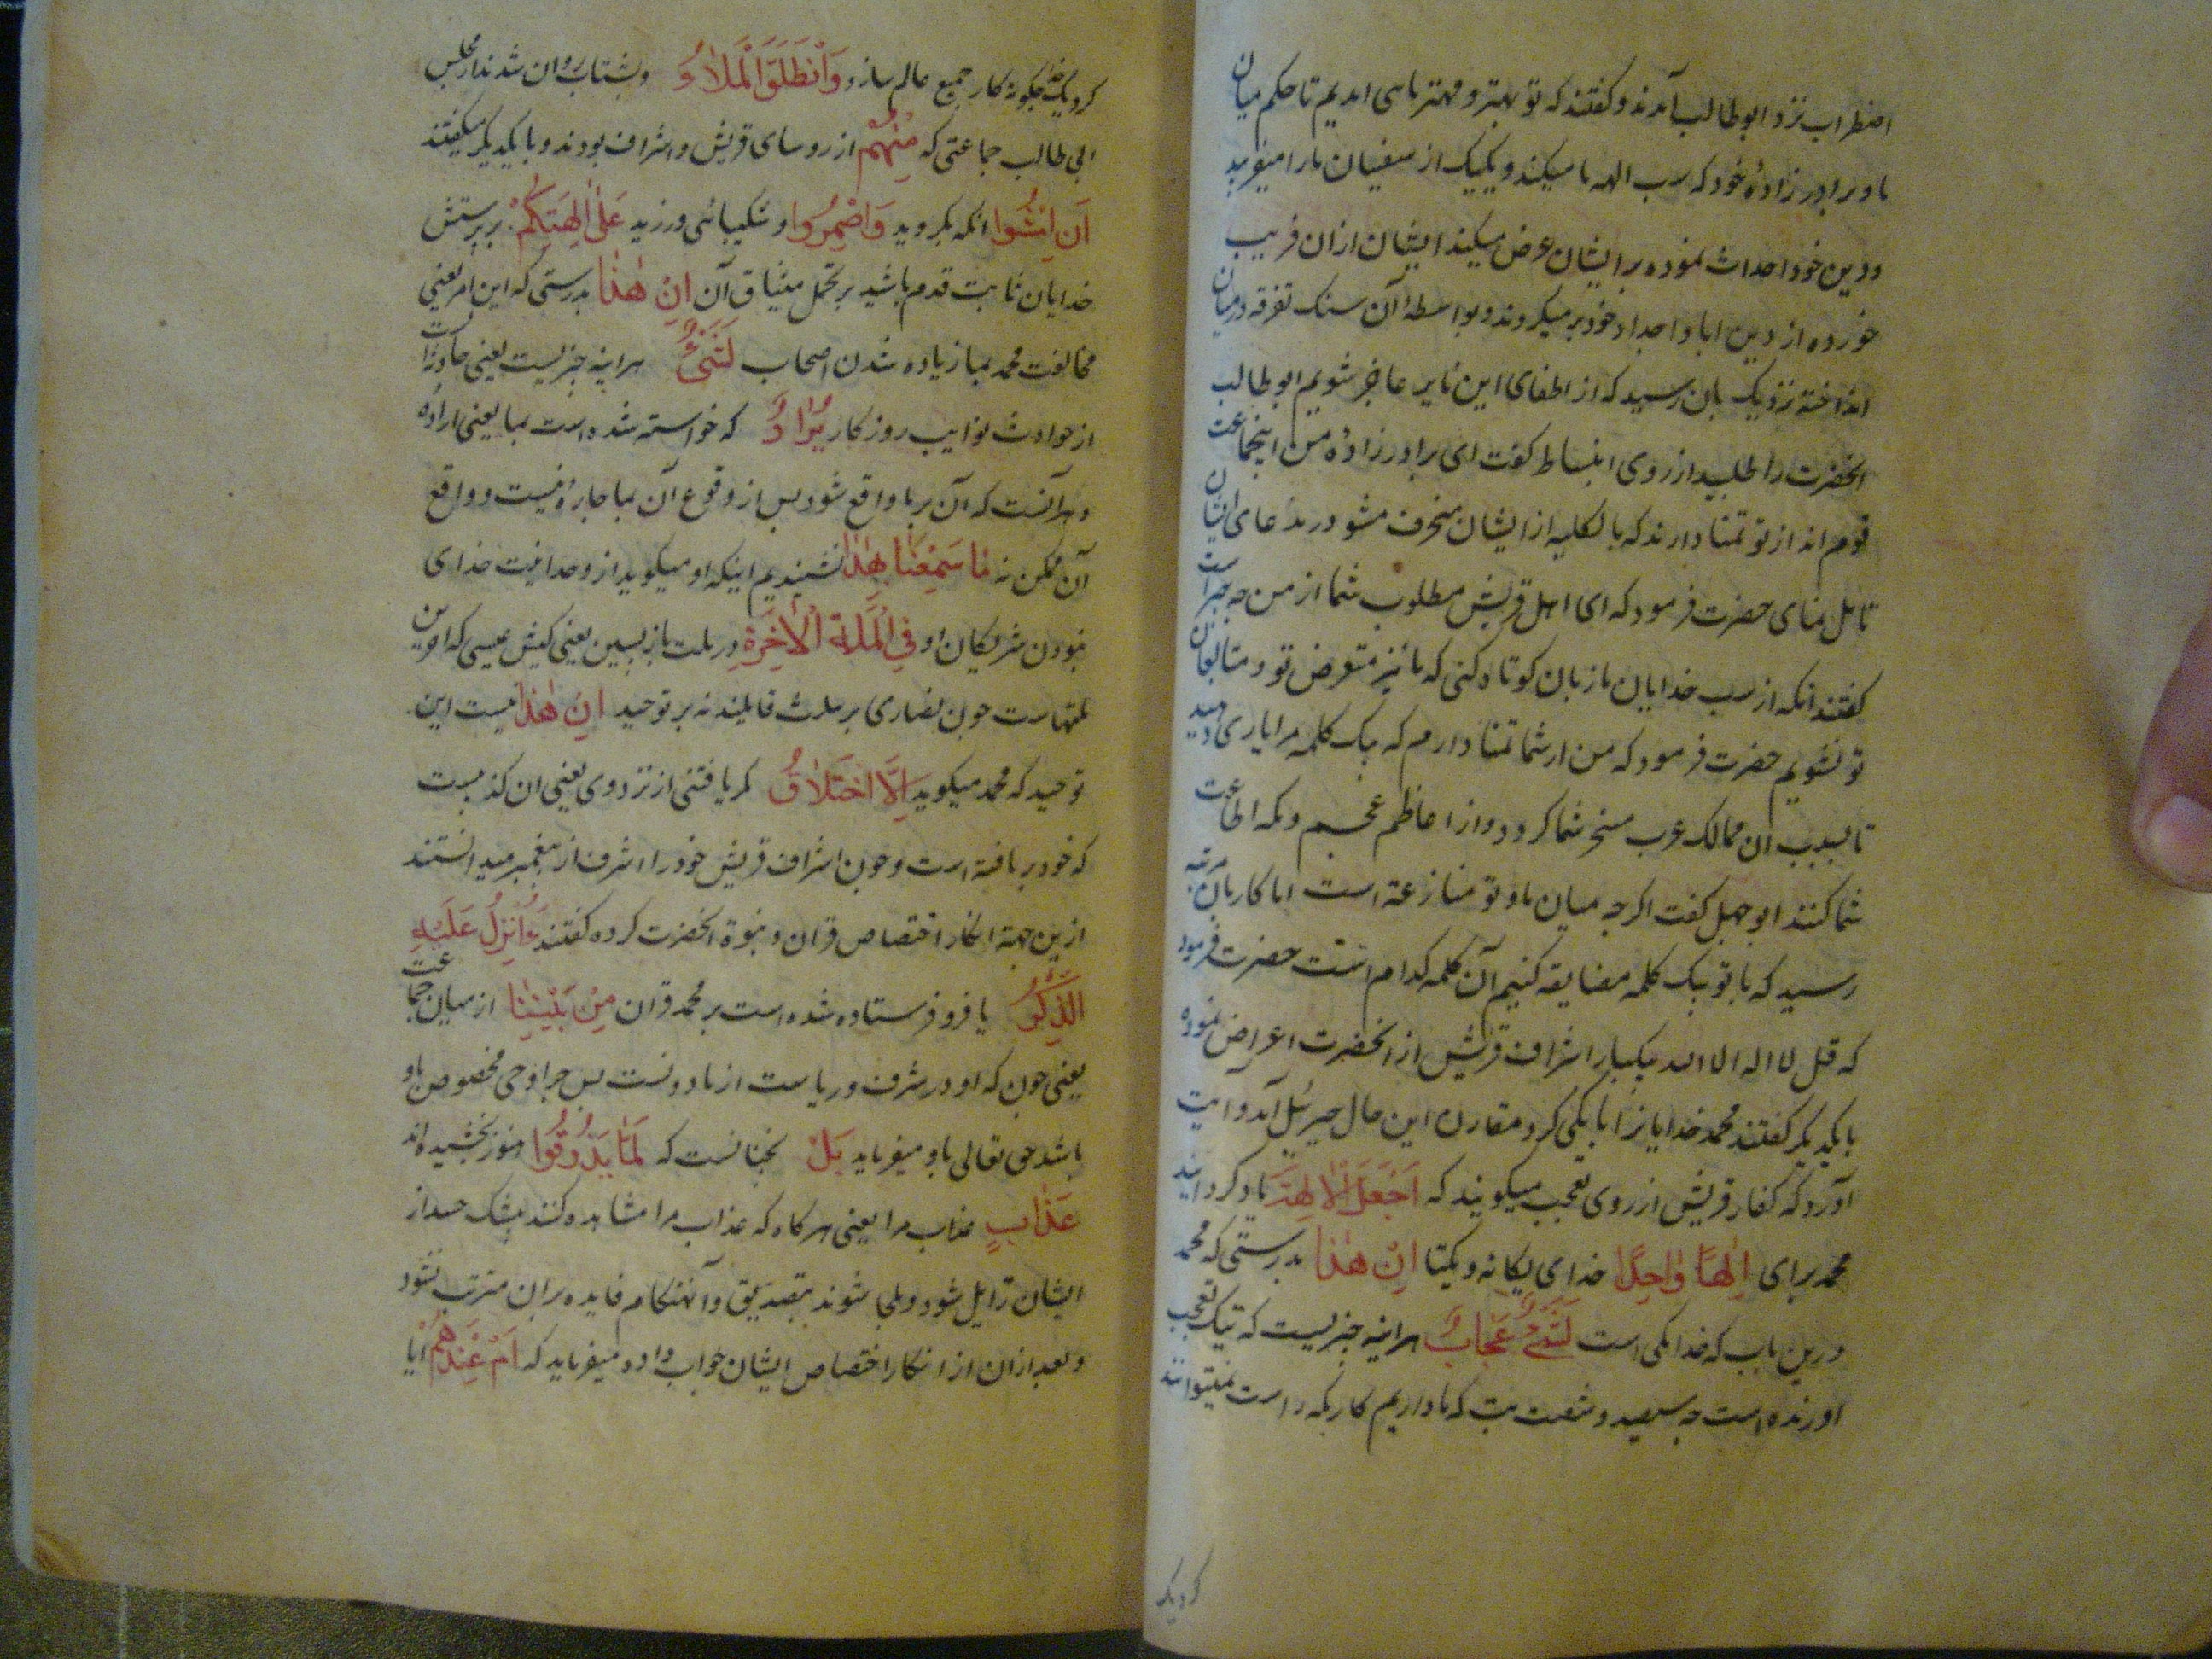 اضطراب نزد ابوطالب آمدند و کفتند که تو بهتر و مهتر مایی امدیم تا حکم میان
ما و برادر زادهٔ خود که سب الهه ما میکند و یکیک از سفیان ما را میفریبد
و دین خود احداث نموده بر ایشان عرض میکند ایشان ازان فریب
خورده از دین ابا و اجداد خود بر میکردند و بواسطهٔ آن سنک تفرقه درمیان
انداخته نزدیک بان رسید که از اطفای این نایر عاجز شویم ابوطالب
انحضرت را طلبید از روی انبساط کفت ای برادر زادهٔ من اینجماعت
قوم اند از تو تمنا دارند که بالکلیه از ایشان منحرف مشو در مدعای ایشان
تامل نمای حضرت فرمود که ای اهل قریش مطلوب شما از من چه چیز است
کفتند انکه از سب خدایان ما زبان کوتاه کنی که ما نیز متعرض تو و متابعان
تو نشویم حضرت فرمود که من از شما تمنا دارم که بیک کلمه مرا یاری دهید
تا بسبب ان ممالک عرب مسخر شما کردد و از اعاظم عجم و مکه اطاعت
شما کنند ابوجهل کفت اکرچه میان ما و تو منازعه است اما کار بان مرتبه
رسید که با تو بیک کلمه مضایقه کنیم آن کلمه کدام است حضرت فرمود
که قل لا اله الا الله بیکبار اشراف قریش از انحضرت اعراض نموده
با یکدیکر کفتند محمد خدایانرا با یکی کرد مقارن این حال جبرئیل آمد و آیت
آورد که کفار قریش از روی تعجب میکویند که اَجَعَلَ الْاٰلِهَةَ یا کردانید
محمد برای اِلٰهًا وٰاحِدًا خدای یکانه و یکتا اِنَّ هٰذٰا بدرستی که محمد
درین باب که خدا یکی است لَشَیْءٌ عُجٰابٌ هراینه چیزیست که نیک تعجب
اورنده است چه سیصد و شصت بت که ما داریم کار مکه راست نمیتوانند
کردیک
کرد یک خدا چکونه کار جمیع عالم سازد وَانْطَلَقَ الْمَلَاُ و بشتاب روان شدند از مجلس
ابی طالب جماعتی که مِنْهُمْ از روسای قریش و اشراف بودند و با یکدیکر میکفتند
اَنِ امْشُوا انکه بکروید وَاصْبِرُوا و شکیبائی ورزید عَلیٰ اٰلِهَتِکُمْ بر پرستش
خدایان ثابت قدم باشید بر تحمل میثاق آن اِنَّ هٰذٰا بدرستی که این امر یعنی
مخالفت محمد بما زیاده شدن اصحاب لَشَیْءٌ هراینه چیزیست یعنی حادثه است
از حوادث نوایب روزکار یُرٰادُ که خواسته شده است بما یعنی اراده
آنست که آن بر ما واقع شود پس از وقوع آن بما چارهٔ نیست و واقع
آن ممکن نه مٰا سَمِعْنٰا بِهٰذٰا نشنیدیم اینکه او میکوید از وحدانیت خدای
نبودن شریکان او فِی الْمِلَّةِ الْاٰخِرَةِ در ملت بازپسین یعنی کیش عیسی که اخرین
ملتهاست چون نصاری بر مثلث قایلند نه بر توحید اِنْ هٰذٰا نیست این
توحید که محمد میکوید اِلَّا اخْتِلٰاقٌ مکر یافتنی از نزد وی یعنی ان کذبست
که خود بر بافته است و چون اشراف قریش خود را اشرف از پیغمبر میدانستند
ازین جهة انکار اختصاص قران و نبوة انحضرت کرده کفتند ءَاُنْزِلَ عَلَیْهِ
الذِّکْرُ یا فرو فرستاده شده است بر محمد قران مِنْ بَیْنِنٰا از میان جماعت
یعنی چون که او در شرف و ریاست از ما دونست پس چرا وحی مخصوص باو
باشد حق تعالی باو میفرماید بَلْ نچنانست که لَمّٰا یَذُوقُوا هنوز نچشیده اند
عَذٰابِ عذاب مرا یعنی هرکاه که عذاب مرا مشاهده کنند بیشک حسد از
ایشان زایل شود و ملجا شوند بتصدیق و آنهنکام فایده بران مترتب نشود
و بعد ازان از انکار اختصاص ایشان جواب داده میفرماید که اَمْ عِنْدَهُمْ ایا